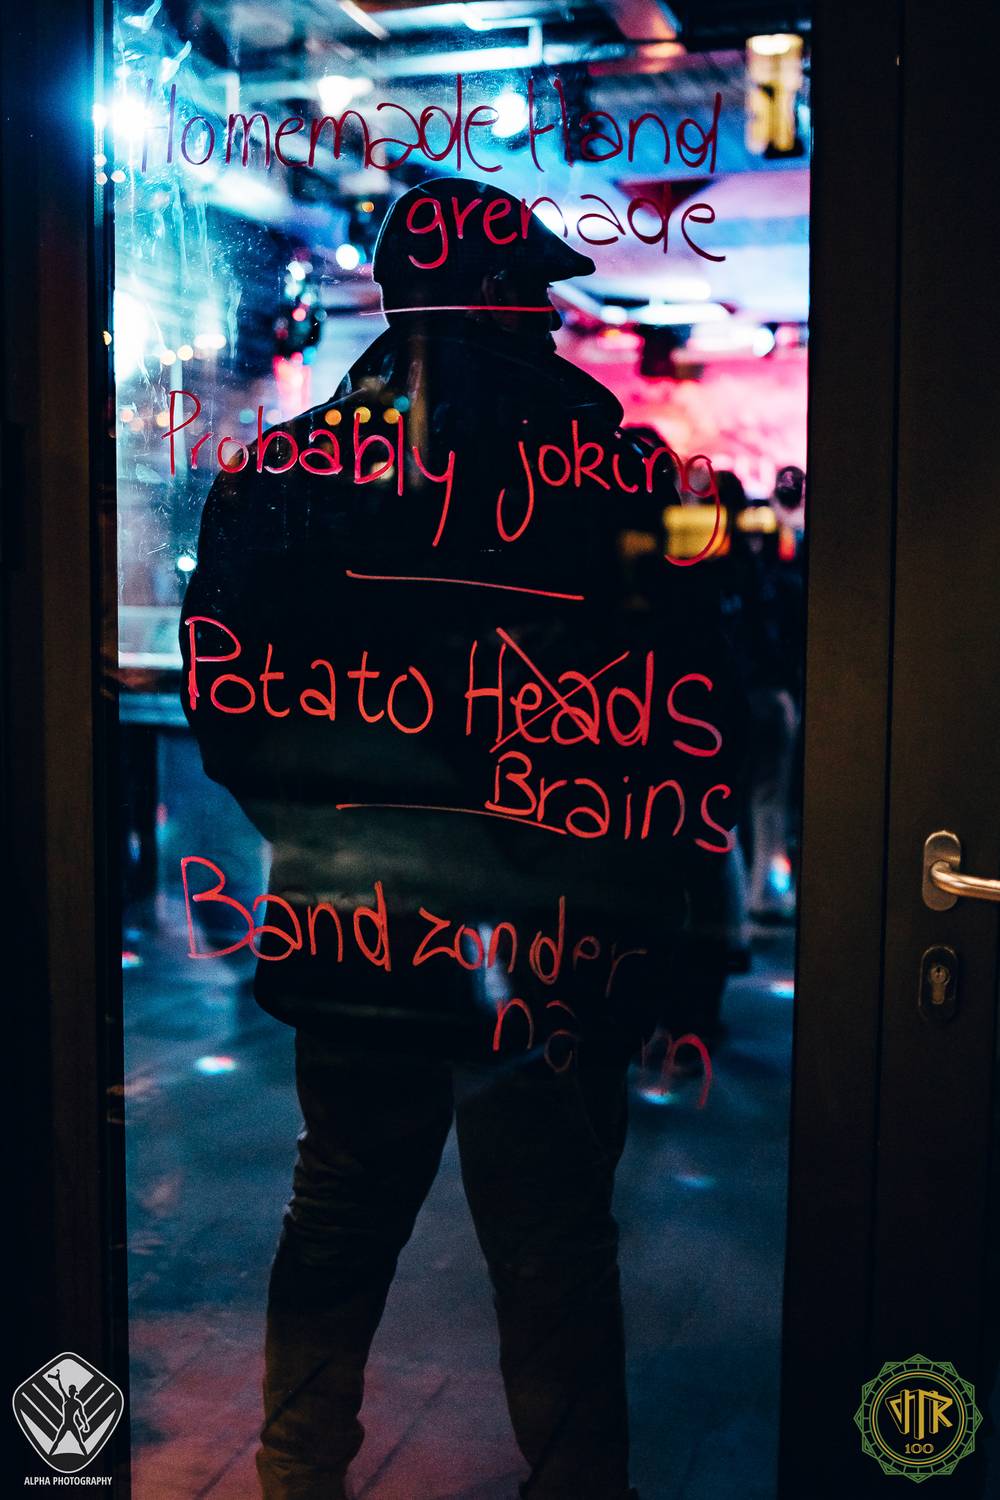 Homemade Hand
grenade
Probably joking
Potato Heads
Brains
Band zonder
naam
ALPHA PHOTOGRAPHY
VTR
100